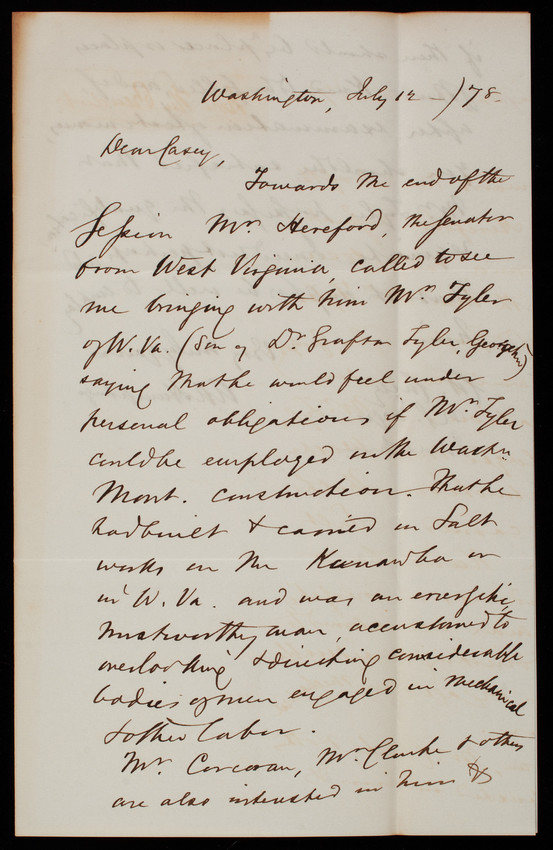 Washington, July 12 -/78.
Dear Casey,
Towards the end of the
Session Mr. Hereford, the Senator
from West Virginia, called to see
me bringing with him Mr. Tyler
of W. Va. (Son of Dr. Grafton Tyler, Georgetn)
saying that he would feel under
personal obligations if Mr. Tyler
could be employed on the Washn.
Mont. construction. That he
had built & carried on Salt
works on the Kanawha or
in W. Va. and was an energetic,
trustworthy man, accustomed to
overlooking & directing considerable
bodies of men engaged in mechanical
& other labor.
Mr. Corcoran, Mr. Clarke & others
are also interested in him &